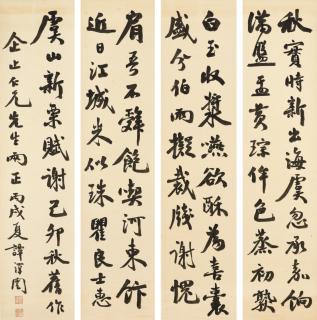 秋實時新出海虞忽承嘉餉
滿盤盂黃琮侔色蒸初熟
白玉收漿嚥欲酥為喜囊
盛分伯雨擬裁牋謝愧
肩吾不辭飽喫河東飰
近日江城米似珠瞿良士惠
虞山新栗賦謝己卯秋舊作
企止仁兄先生兩正丙戌夏譚澤闓